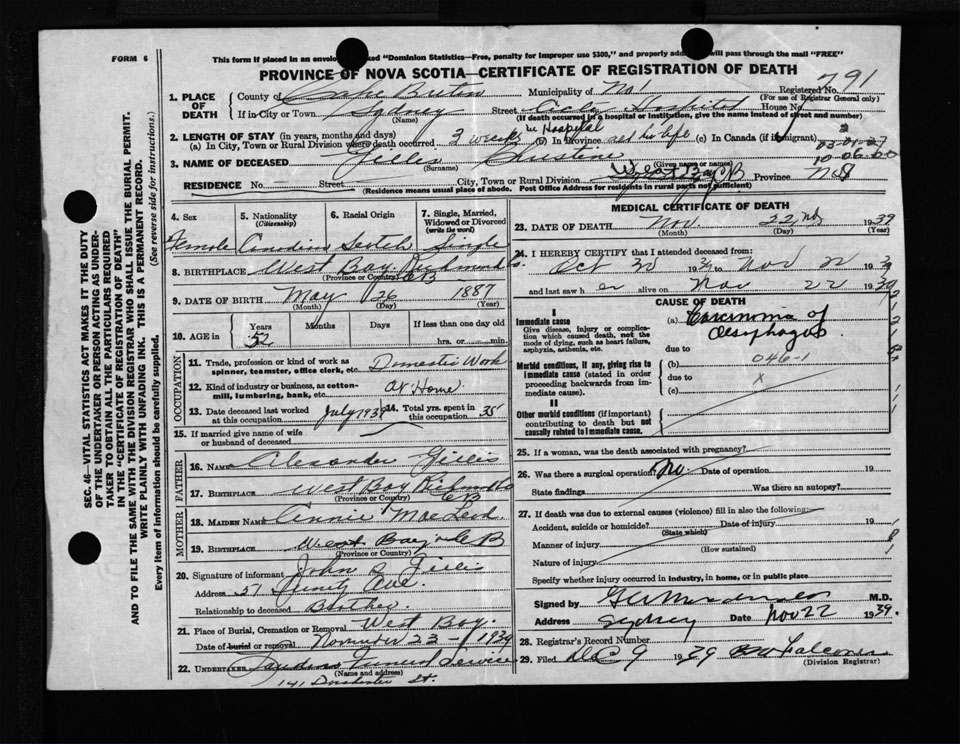 FORM 6
This form if placed in an envelope marked "Dominion Statistics—Free, penalty for improper use $300," and properly addressed will pass through the mail "FREE"
PROVINCE OF NOVA SCOTIA—CERTIFICATE OF REGISTRATION OF DEATH
Registered No. 791
(For use of Registrar General only)
1. PLACE OF DEATH
County of Cape Breton Municipality of No 1
If in City or Town Sydney Street City Hospital House No.
(Name) (If death occurred in a hospital or institution, give the name instead of street and number)
2. LENGTH OF STAY (in years, months and days)
(a) In City, Town or Rural Division where death occurred 3 weeks in Hospital (b) In Province all his life (c) In Canada (if immigrant)
3. NAME OF DECEASED Gillis Christine
(Surname) (Given name or names)
RESIDENCE No. Street City, Town or Rural Division West Bay CB Province N.S.
(Residence means usual place of abode. Post Office Address for residents in rural parts not sufficient)
4. Sex
Female
5. Nationality (Citizenship)
Canadian
6. Racial Origin
Scotch
7. Single, Married, Widowed or Divorced (write the word)
Single
8. BIRTHPLACE West Bay Richmond Co. CB
(Province or Country)
9. DATE OF BIRTH May 26 1887
(Month) (Day) (Year)
10. AGE in Years Months Days If less than one day old
52 hrs. or min.
OCCUPATION
11. Trade, profession or kind of work as spinner, teamster, office clerk, etc. Domestic Work
12. Kind of industry or business, as cotton-mill, lumbering, bank, etc. At Home
13. Date deceased last worked at this occupation July 1939 14. Total yrs. spent in this occupation 35
15. If married give name of wife or husband of deceased
FATHER
16. NAME Alexander Gillis
17. BIRTHPLACE West Bay Richmond Co CB
(Province or Country)
MOTHER
18. MAIDEN NAME Annie MacLeod
19. BIRTHPLACE West Bay CB
(Province or Country)
20. Signature of informant John D Gillis
Address 51 Trinity Ave.
Relationship to deceased Brother
21. Place of Burial, Cremation or Removal West Bay.
Date of burial or removal November 23 - 1939
22. UNDERTAKER Funeral Service
(Name and address)
141 Dorchester St.
MEDICAL CERTIFICATE OF DEATH
23. DATE OF DEATH Nov. 22nd 1939
(Month) (Day) (Year)
24. I HEREBY CERTIFY that I attended deceased from:
Oct 30 1939 to Nov 22 1939
and last saw her alive on Nov 22 1939
CAUSE OF DEATH
I
Immediate cause
Give disease, injury or complication which caused death, not the mode of dying, such as heart failure, asphyxia, asthenia, etc.
(a) Carcinoma of Oesophagus
due to
046-1
Morbid conditions, if any, giving rise to immediate cause (stated in order proceeding backwards from immediate cause).
(b)
due to x
(c)
II
Other morbid conditions (if important) contributing to death but not causally related to immediate cause.
25. If a woman, was the death associated with pregnancy?
26. Was there a surgical operation? No. Date of operation 19
State findings Was there an autopsy?
27. If death was due to external causes (violence) fill in also the following:
Accident, suicide or homicide? Date of injury 19
(State which)
Manner of injury
(How sustained)
Nature of injury
Specify whether injury occurred in industry, in home, or in public place
Signed by M.D.
Address Sydney Date Nov 22 1939.
28. Registrar's Record Number
29. Filed Dec 9 1939 Falconer
(Division Registrar)
SEC. 46—VITAL STATISTICS ACT MAKES IT THE DUTY OF THE UNDERTAKER OR PERSON ACTING AS UNDERTAKER TO OBTAIN ALL THE PARTICULARS REQUIRED IN THE "CERTIFICATE OF REGISTRATION OF DEATH" AND TO FILE THE SAME WITH THE DIVISION REGISTRAR WHO SHALL ISSUE THE BURIAL PERMIT.
WRITE PLAINLY WITH UNFADING INK. THIS IS A PERMANENT RECORD.
Every item of information should be carefully supplied. (See reverse side for instructions.)